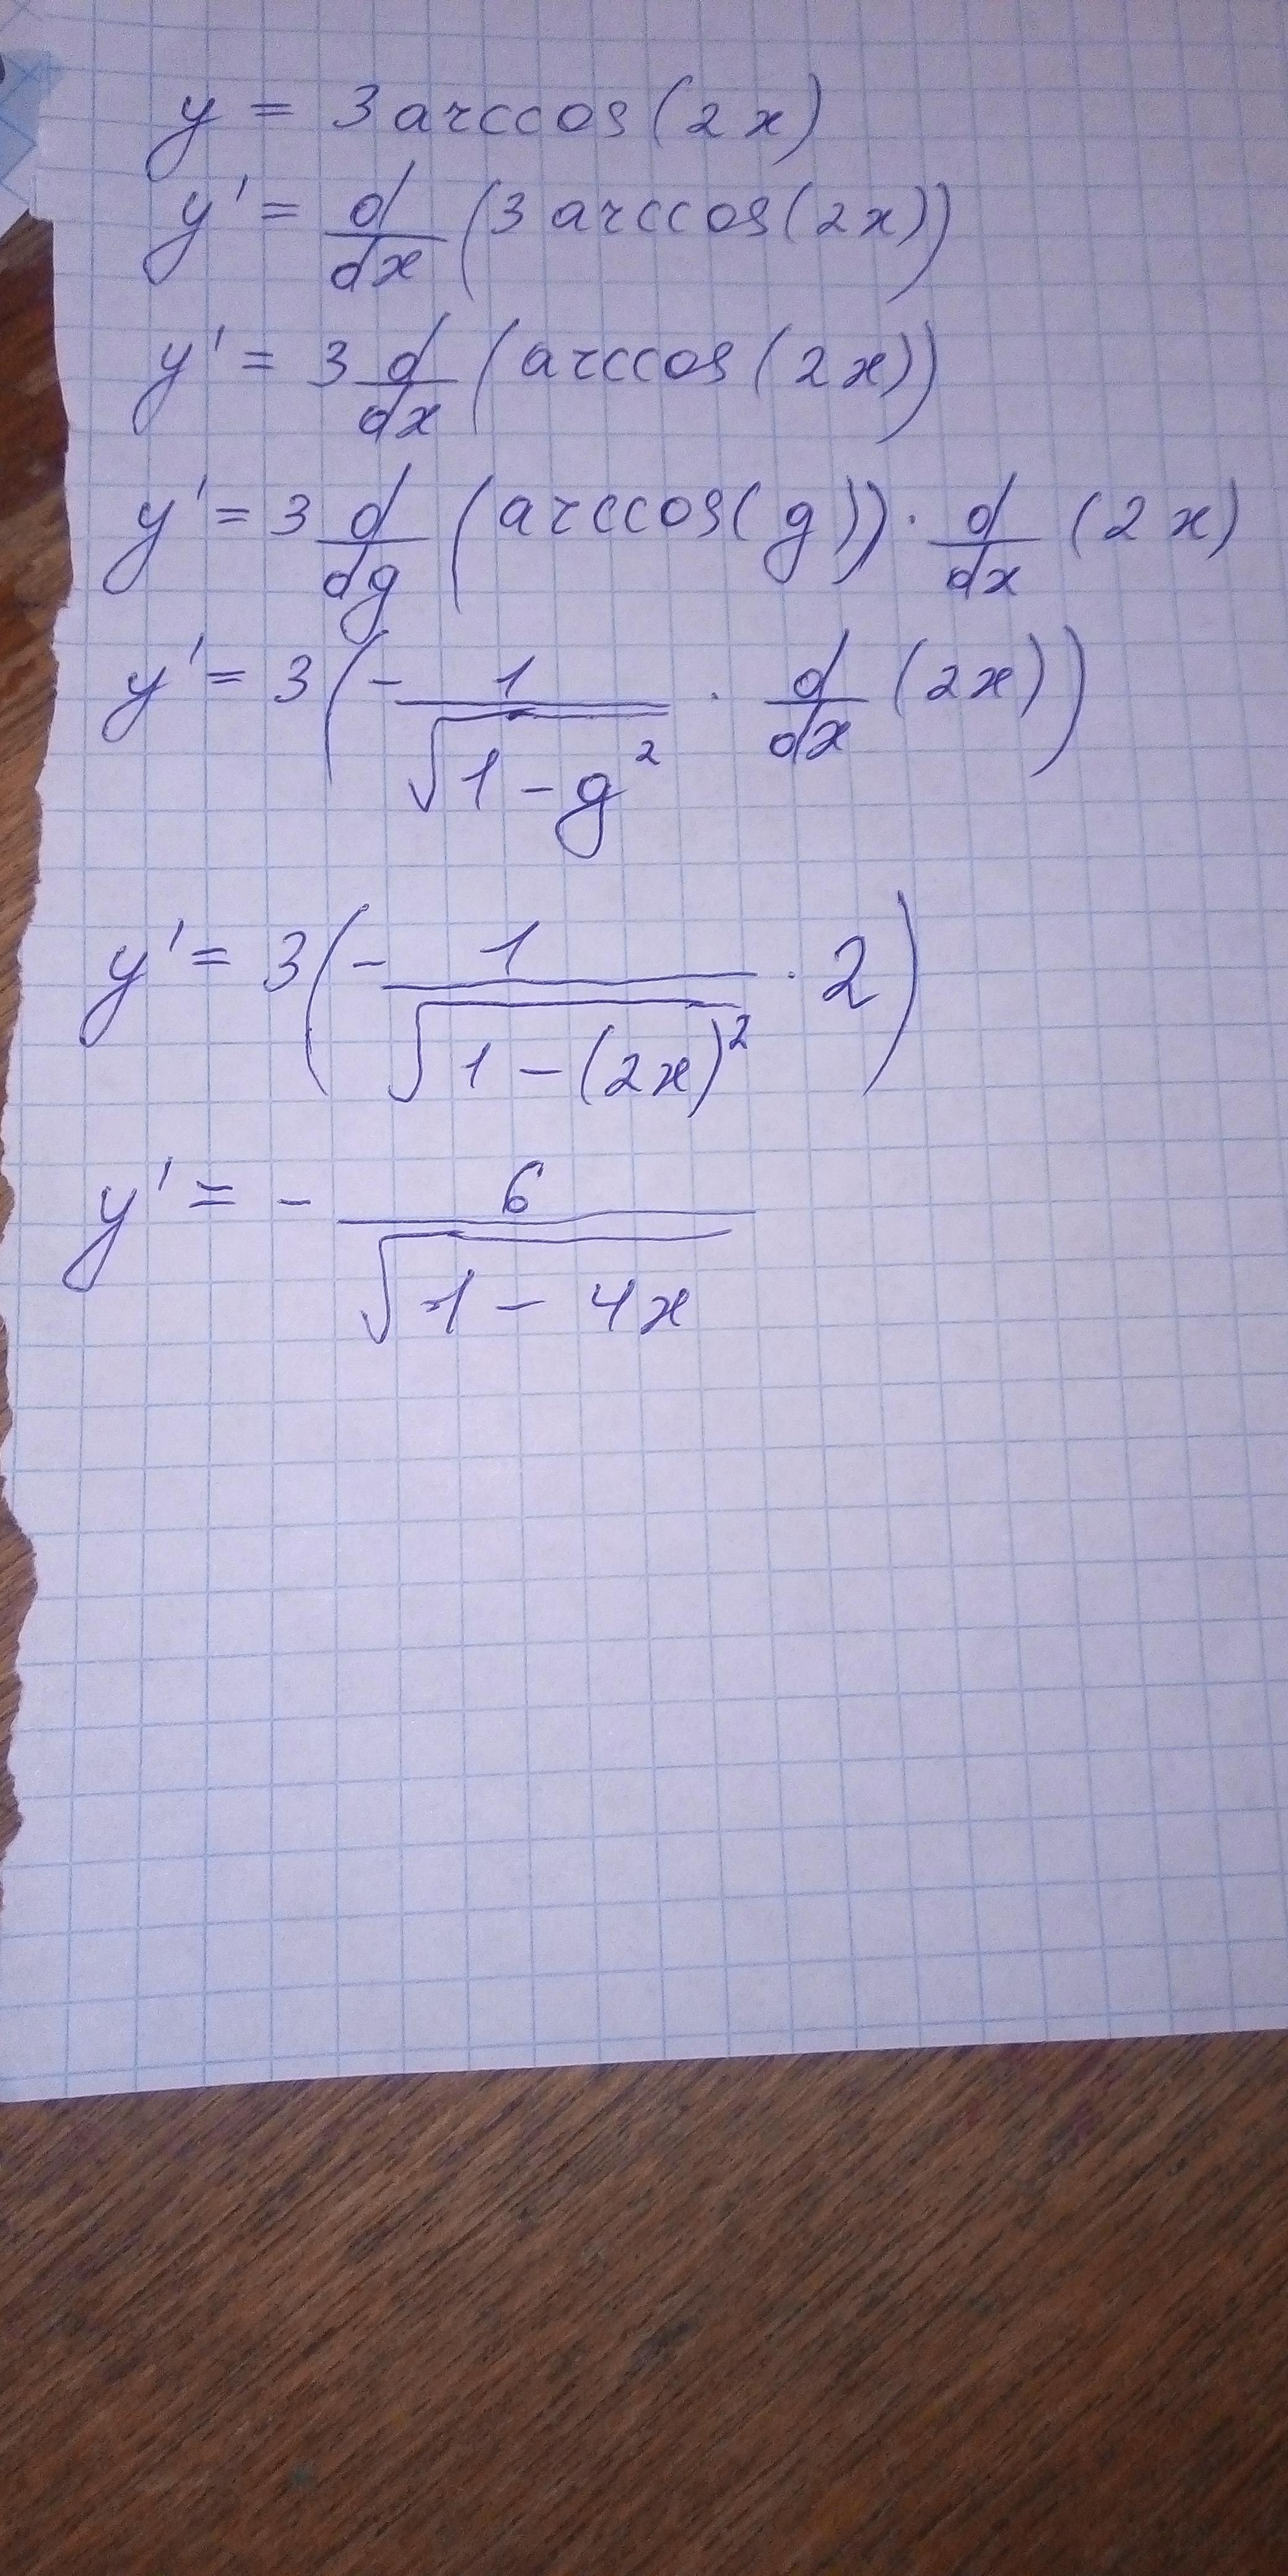 y = 3 arccos(2x)
y' = d/dx (3 arccos(2x))
y' = 3 d/dx (arccos(2x))
y' = 3 d/dg (arccos(g)) · d/dx (2x)
y' = 3(- 1/√(1-g²) · d/dx (2x))
y' = 3(- 1/√(1-(2x)²) · 2)
y' = - 6/√(1-4x)